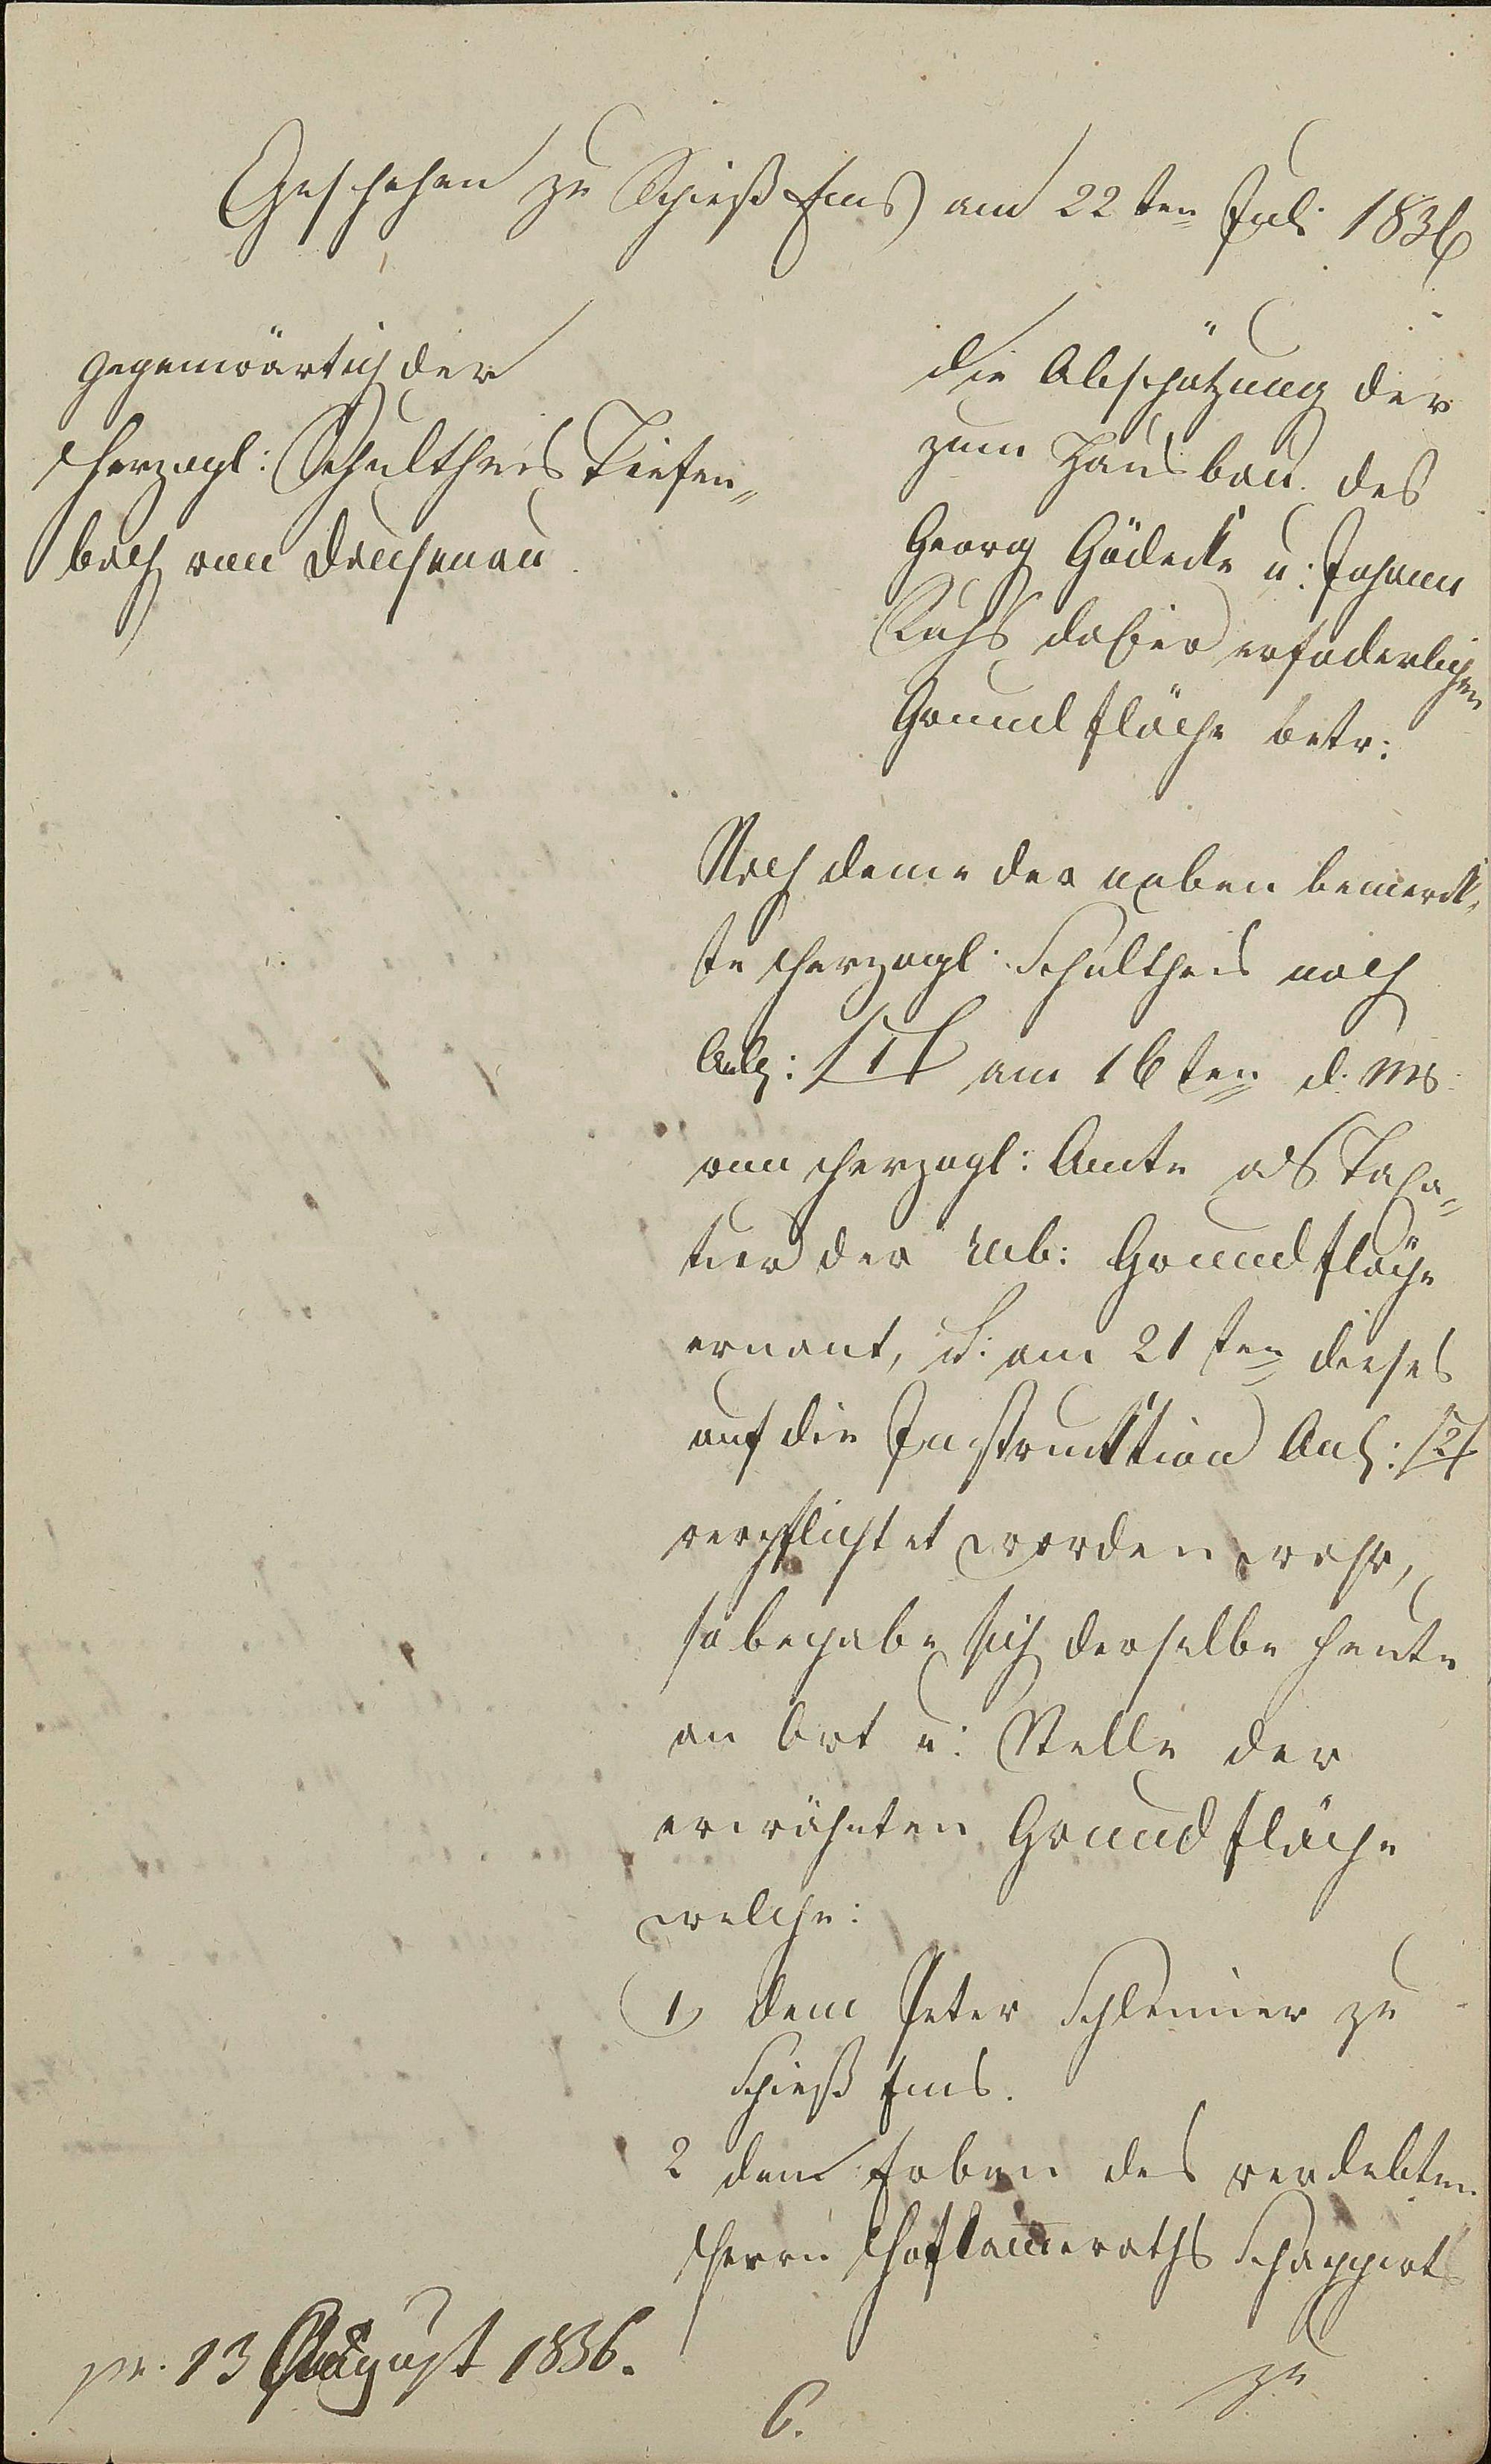 Geschehen zu Spieß Ems am 22ten Juli 1836
gegenwärtich der
Herzogl: Schultheis Tiefen„
bach von Dausenau
die Abschätzung der
zum Hausbau des
Georg Gödecke u: Johann
dahier erfoderlichen
Grundfläche betr:
Nach deme der neben bemerck„
te Herzogl. Schultheis nach
Anlg: /1/ am 16ten d. Ms.
von Herzogl: Amte als Taxa„
tor der rub: Grundfläche
ernant, u: am 21ten dieses
auf die Instrucktion Anl: /2/
verpflichtet worden wahr,
so begabe sich derselbe heute
an Ort u: Stelle der
erwähnten Grundfläche
welche:
1, dem Peter Schlemmer zu
Spieß Ems.
2 den Erben des verlebten
Herrn Hofkammeraths
zu
pr. 13 August 1836.
6.